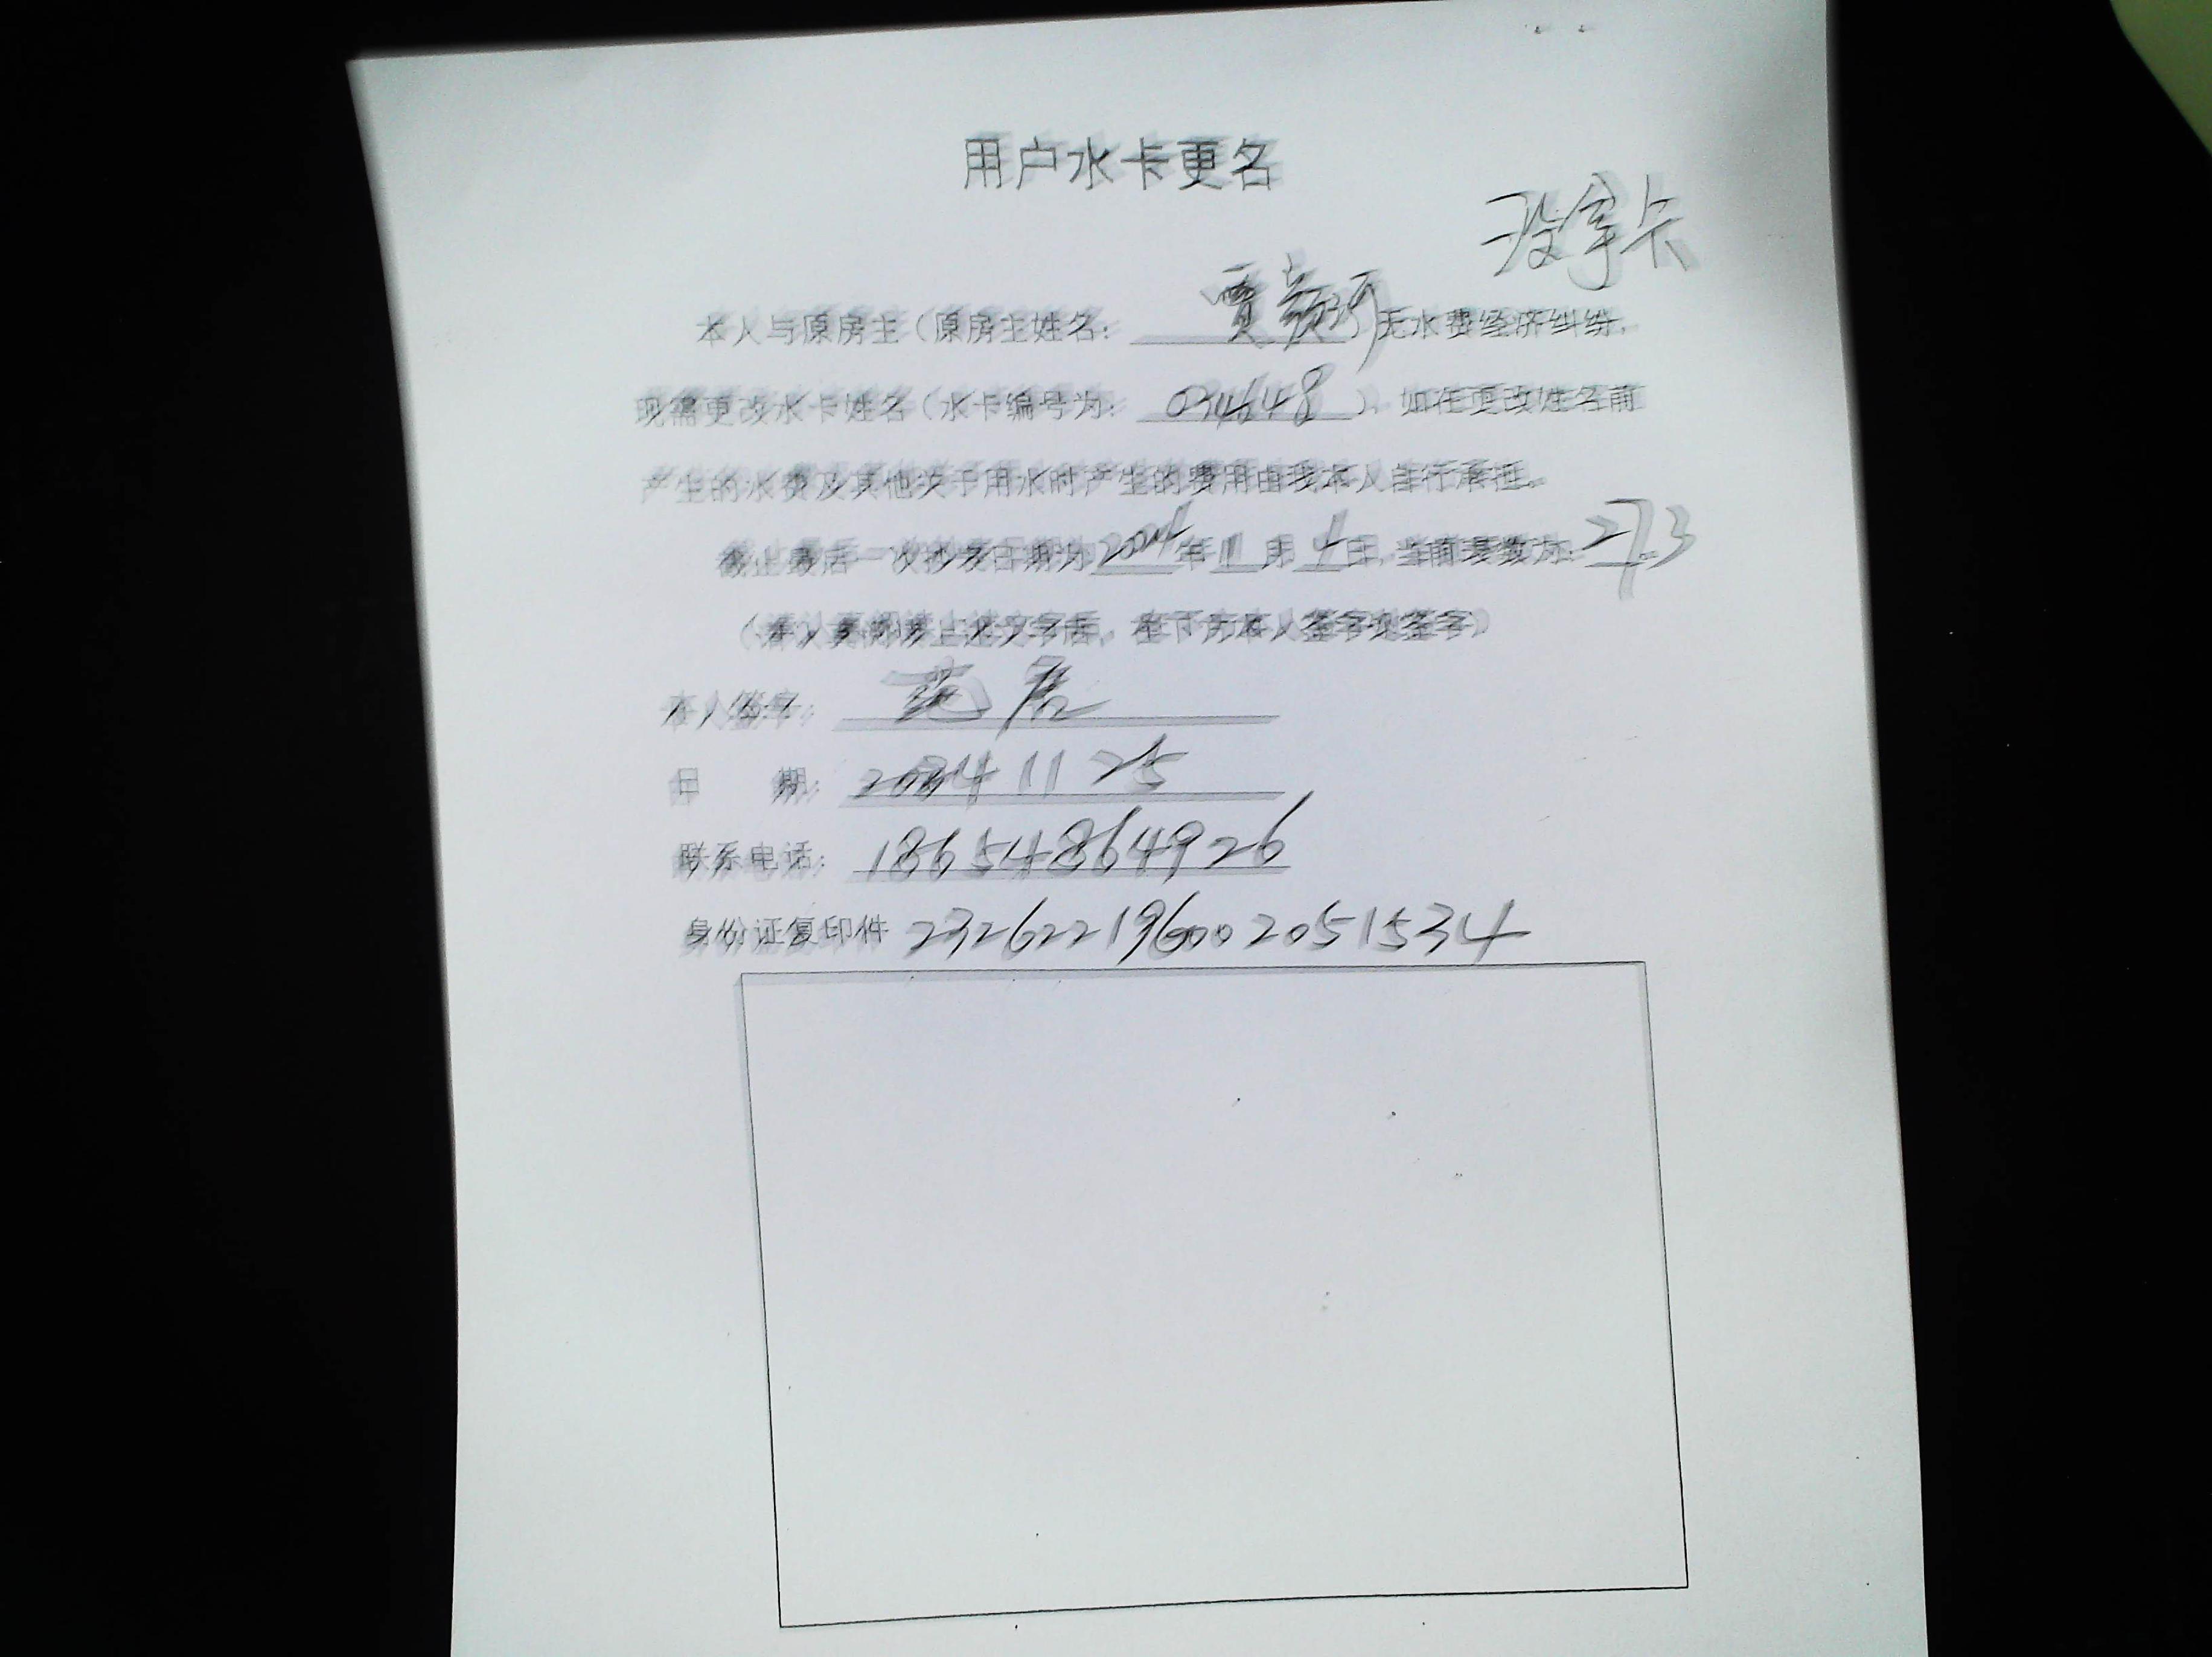 用户水卡更名
没拿卡
本人与原房主（原房主姓名：贾 ）无水费经济纠纷，
现需更改水卡姓名（水卡编号为：034648），如在更改姓名前
产生的水费及其他关于用水时产生的费用由我本人自行承担。
截止最后一次抄表日期为2024年11月4日，当前表数为：273
（请认真阅读上述文字后，在下方本人签字处签字）
本人签字：范
日 期：2024 11 25
联系电话：18654864926
身份证复印件 232622196002051534